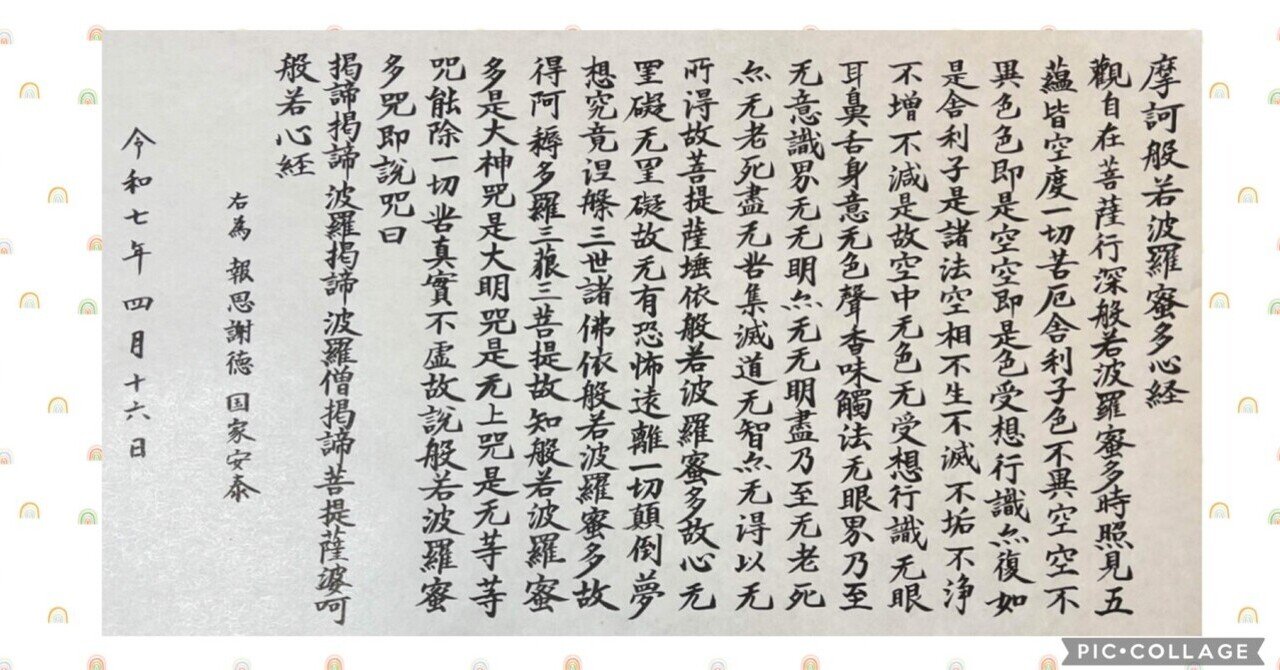 摩訶般若波羅蜜多心経
觀自在菩薩行深般若波羅蜜多時照見五
蘊皆空度一切苦厄舎利子色不異空空不
異色色即是空空即是色受想行識亦復如
是舎利子是諸法空相不生不滅不垢不浄
不增不減是故空中无色无受想行識无眼
耳鼻舌身意无色聲香味觸法无眼界乃至
无意識界无无明亦无无明盡乃至无老死
亦无老死盡无苦集滅道无智亦无得以无
所得故菩提薩埵依般若波羅蜜多故心无
罣礙无罣礙故无有恐怖遠離一切顛倒夢
想究竟涅槃三世諸佛依般若波羅蜜多故
得阿耨多羅三藐三菩提故知般若波羅蜜
多是大神咒是大明咒是无上咒是无等等
咒能除一切苦真實不虛故說般若波羅蜜
多咒即說咒曰
揭諦揭諦波羅揭諦波羅僧揭諦菩提薩婆呵
般若心経
右為 報恩謝徳 国家安泰
令和七年四月十六日
PIC•COLLAGE